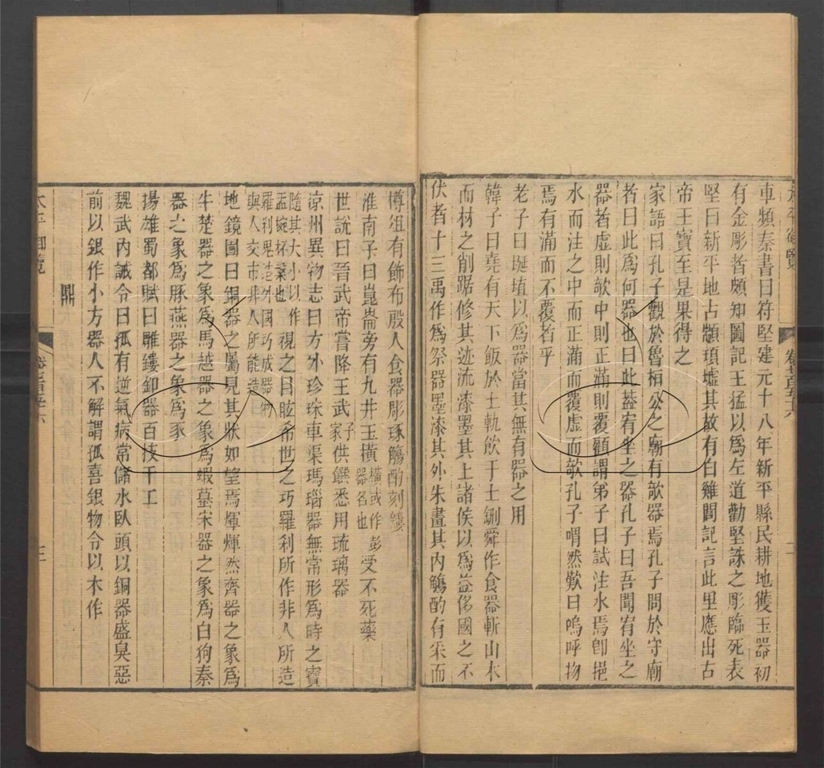 車頻秦書曰苻堅建元十八年新平縣民耕地獲玉器初
有金彫者頗知圖記王猛以爲左道勸堅誅之彫臨死表
堅曰新平地古顓頊墟其故有白雞閭記言此里應出古
帝王寶至是果得之
家語曰孔子觀於魯桓公之廟有欹器焉孔子問於守廟
者曰此爲何器也曰此葢宥坐之器孔子曰吾聞宥坐之
器者虛則欹中則正滿則覆顧謂弟子曰試注水焉卽挹
水而注之中而正滿而覆虛而欹孔子喟然歎曰嗚呼物
焉有滿而不覆者乎
老子曰埏埴以爲器當其無有器之用
韓子曰堯有天下飯於土軌飲于土鉶舜作食器斬山木
而材之削踞修其迹流漆墨其上諸侯以爲益侈國之不
伏者十三禹作爲祭器墨漆其外朱畫其內觴酌有采而
樽俎有飾布殷人食器彫琢觴酌刻鏤
淮南子曰崑崙旁有九井玉橫橫或作彭器名也受不死藥
世說曰晉武帝嘗降王武子家供饌悉用琉璃器
涼州異物志曰方外珍珠車渠瑪瑙器無常形爲時之寶
隨其大小以作盂碗杯棗也視之目眩希世之巧羅利所作非人所造
羅利鬼造外國巧成器物與人交市非人所能造
地鏡圖曰銅器之屬見其狀如望焉煇煇然齊器之象爲
牛楚器之象爲馬越器之象爲蝦蟇宋器之象爲白狗秦
器之象爲豚燕器之象爲豕
揚雄蜀都賦曰雕鏤釦器百技千工
魏武內誡令曰孤有逆氣病常儲水臥頭以銅器盛臭惡
前以銀作小方器人不解謂孤喜銀物令以木作
鼎
太平御覽 卷七百五十六 三